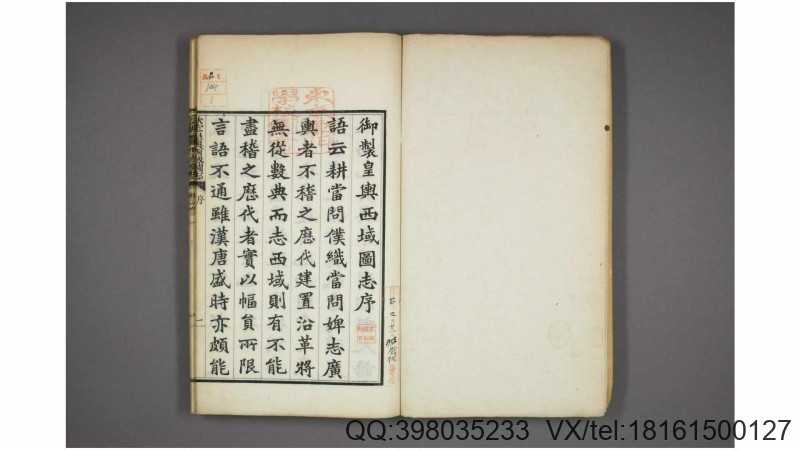 御製皇輿西域圖志序
語云耕當問僕織當問婢志廣
輿者不稽之歷代建置沿革將
無從數典而志西域則有不能
盡稽之歷代者實以幅員所限
言語不通雖漢唐盛時亦頗能
序
一
QQ:398035233 VX/tel:18161500127